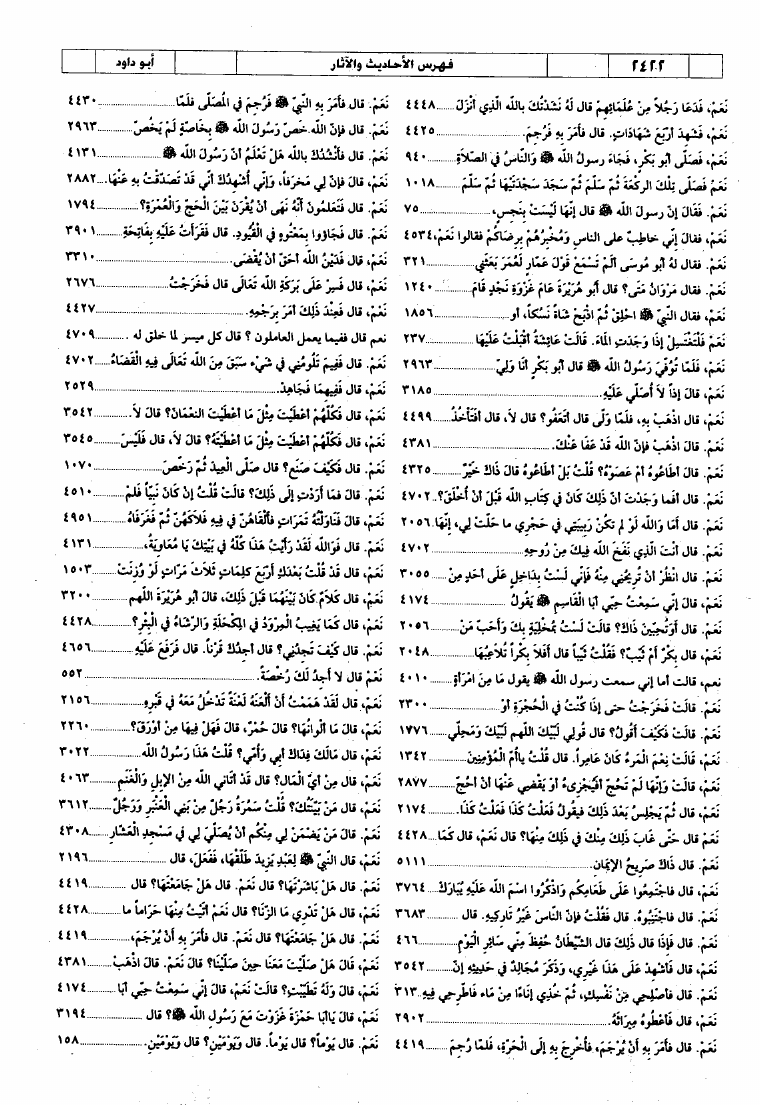 ٢٤٢٢
فهرس الأحاديث والآثار
أبو داود
نَعَمْ، فَدَعَا رَجُلاً مِنْ عُلَمَائِهِمْ قال لَهُ نَشَدْتُكَ بالله الَّذِي أَنْزَلَ ........ ٤٤٤٨
نَعَمْ، فَشَهِدَ أَرْبَعَ شَهَادَاتٍ. قال فأَمَرَ بِهِ فَرُجِمَ. ........ ٤٤٢٥
نَعَمْ، فَصَلَّى أَبو بَكْرٍ، فَجَاءَ رسولُ الله ﷺ وَالناسُ في الصّلاَةِ ........ ٩٤٠
نَعَمْ فَصَلَّى تِلْكَ الركْعَةَ ثُمّ سَلّمَ ثُمّ سَجَدَ سَجْدَتَيْهَا ثُمّ سَلّمَ ........ ١٠١٨
نَعَمْ. فَقَالَ إنّ رسولَ الله ﷺ قال إنّهَا لَيْسَتْ بِنَجِسٍ، ........ ٧٥
نَعَمْ، فقال إنّي خاطِبٌ على الناسِ وَمُخْبِرُهُمْ بِرِضَاكُمْ فقالوا نَعَمْ، ٤٥٣٤
نَعَمْ. فقال لهُ أَبو مُوسَى أَلَمْ تَسْمَعْ قَوْلَ عَمّارٍ لِعُمَرَ بَعَثَنِي ........ ٣٢١
نَعَمْ. فقال مَرْوَانُ مَتَى؟ قال أبو هُرَيْرَةَ عَامَ غَزْوَةِ نَجْدٍ قَامَ ........ ١٢٤٠
نَعَمْ، فقال النّبيّ ﷺ احْلِقْ ثُمّ اذْبَحْ شَاةً نُسُكاً، أو ........ ١٨٥٦
نَعَمْ فَلْتَغْتَسِلْ إذَا وَجَدَتِ المَاءَ. قالَتْ عَائِشَةُ أَقْبَلْتُ عَلَيْهَا ........ ٢٣٧
نَعَمْ، فَلَمّا تُوُفّيَ رَسُولُ الله ﷺ قال أَبو بَكْرٍ أَنَا وَلِيّ ........ ٢٩٦٣
نَعَمْ، قالَ إذاً لاَ أُصَلِّي عَلَيْهِ. ........ ٣١٨٥
نَعَمْ، قال اذْهَبْ بِهِ، فَلَمّا وَلّى قال أَتَعْفُو؟ قال لاَ، قال أَفَتَأْخُذُ ........ ٤٤٩٩
نَعَمْ. قالَ اذْهَبْ فإنّ الله قَدْ عَفَا عَنْكَ. ........ ٤٣٨١
نَعَمْ. قال أَطَاعُوهُ أمْ عَصَوْهُ؟ قُلْتُ بَلْ أَطَاعُوهُ قالَ ذَاكَ خَيْرٌ ........ ٤٣٢٥
نَعَمْ. قال أَفَما وَجَدْتَ أنّ ذَلِكَ كَانَ في كِتَابِ الله قَبْلَ أنْ أُخْلَقَ؟ ٤٧٠٢
نَعَمْ. قال أَمَا وَالله لَوْ لم تَكُنْ رَبِيبَتِي في حَجْرِي ما حَلّتْ لِي، إنّهَا ٢٠٥٦
نَعَمْ. قال أَنْتَ الّذِي نَفَخَ الله فِيكَ مِنْ رُوحِهِ ........ ٤٧٠٢
نَعَمْ. قال انْظُرْ أَنْ تُرِيحَنِي مِنْهُ فَإِنّي لَسْتُ بِدَاخِلٍ عَلَى أَحَدٍ مِنْ ........ ٣٠٥٥
نَعَمْ، قال إنّي سَمِعْتُ حِبّي أبَا القَاسِمِ ﷺ يَقُولُ ........ ٤١٧٤
نَعَمْ. قال أَوَتُحِبّينَ ذَاكَ؟ قالَتْ لَسْتُ بمُخْلِيَةٍ بِكَ وَأَحَبّ مَنْ ........ ٢٠٥٦
نَعَمْ، قال بِكْرٌ أَمْ ثَيّبٌ؟ فَقُلْتُ ثَيّباً قال أَفَلاَ بِكْراً تُلاَعِبُهَا ........ ٢٠٤٨
نعم، قالت أما إني سمعت رسول الله ﷺ يقول ما مِنَ امْرَأَةٍ ........ ٤٠١٠
نَعَمْ. قالَتْ فَخَرَجْتُ حتى إذَا كُنْتُ في الْحُجْرَةِ أوْ ........ ٢٣٠٠
نَعَمْ. قالَتْ فَكَيْفَ أَقُولُ؟ قال قُولِي لَبّيْكَ اللّهم لَبّيْكَ وَمَحِلّي ........ ١٧٧٦
نَعَمْ، قَالَتْ نِعْمَ المَرْءُ كَانَ عَامِراً. قال قُلْتُ ياأُمّ المُؤْمِنِينَ ........ ١٣٤٢
نَعَمْ، قالَتْ وَإِنّهَا لَمْ تَحُجّ أَفَيُجْزِىءُ أَوْ يَقْضِي عَنْهَا أَنْ أَحُجّ ........ ٢٨٧٧
نَعَمْ، قال ثُمّ يَجْلِسُ بَعْدَ ذَلِكَ فيقُولُ فَعَلْتُ كَذَا فَعَلْتُ كَذَا. ........ ٢١٧٤
نَعَمْ قال حَتّى غَابَ ذَلِكَ مِنْكَ في ذَلِكَ مِنْهَا؟ قال نَعَمْ، قال كَمَا ........ ٤٤٢٨
نَعَمْ. قال ذَاكَ صَرِيحُ الإيمَانِ ........ ٥١١١
نَعَمْ، قال فاجْتَمِعُوا عَلَى طَعَامِكُم وَاذْكُرُوا اسْمَ الله عَلَيْهِ يُبَارَكْ ........ ٣٧٦٤
نَعَمْ. قال فاجْتَنِبُوهُ. قال فَقُلْتُ فإِنّ النّاسَ غَيْرُ تَارِكِيهِ. قال ........ ٣٦٨٣
نَعَمْ. قال فَإِذَا قال ذَلِكَ قال الشّيْطَانُ حُفِظَ مِنّي سَائِرَ الْيَوْمِ ........ ٤٦٦
نَعَمْ، قال فأَشْهِدْ عَلَى هَذَا غَيْرِي، وَذَكَرَ مُجَالِدٌ في حَدِيثِهِ إنّ ........ ٣٥٤٢
نَعَمْ. قال فأَصْلِحِي مِنْ نَفْسِكِ، ثُمّ خُذِي إنَاءً مِنْ مَاء فَاطْرَحِي فِيهِ ... ٣١٣
نَعَمْ، قال فأَعْطُوهُ مِيرَاثَهُ. ........ ٢٩٠٢
نَعَمْ. قال فأَمَرَ بِهِ أَنْ يُرْجَمَ، فأُخْرِجَ بِهِ إلَى الْحَرّةِ، فَلَمّا رُجِمَ ........ ٤٤١٩
نَعَمْ. قال فأَمَرَ بِهِ النّبيّ ﷺ فَرُجِمَ في المُصَلّى فَلَمّا ........ ٤٤٣٠
نَعَمْ. قال فإنّ الله خَصّ رَسُولَ الله ﷺ بِخَاصّةٍ لَمْ يَخُصّ ........ ٢٩٦٣
نَعَمْ. قال فأَنْشُدُكَ بالله هَلْ تَعْلَمُ أنّ رَسُولَ الله ﷺ ........ ٤١٣١
نَعَمْ، قالَ فإنّ لِي مَخْرَفاً، وَإِنّي أُشْهِدُكَ أَنّي قَد تَصَدّقْتُ بِهِ عَنْهَا. ... ٢٨٨٢
نَعَمْ. قال فَتَعْلَمُونَ أنّهُ نَهَى أنْ يُقْرَنَ بَيْنَ الْحَجّ وَالْعُمْرَةِ؟ ........ ١٧٩٤
نَعَمْ. قال فَجَاؤوا بِمَعْتُوهٍ في الْقُيُودِ. قال فَقَرَأْتُ عَلَيْهِ بِفَاتِحَةِ ........ ٣٩٠١
نَعَمْ، قال فَدَيْنُ الله أَحَقّ أَنْ يُقْضَى. ........ ٣٣١٠
نَعَمْ، قال فَسِرْ عَلَى بَرَكَةِ الله تَعَالَى قال فَخَرَجْتُ ........ ٢٦٧٦
نَعَمْ، قال فَعِنْدَ ذَلِكَ أَمَرَ بِرَجْمِهِ. ........ ٤٤٢٧
نعم قال ففيما يعمل العاملون ؟ قال كل ميسر لما خلق له ........ ٤٧٠٩
نَعَمْ. قال فَفِيمَ تَلُومُنِي في شَيْء سَبَقَ مِنَ الله تَعَالَى فِيهِ الْقَضَاءُ ........ ٤٧٠٢
نَعَمْ، قال فَفِيهِمَا فَجَاهِدْ. ........ ٢٥٢٩
نَعَمْ، قال فَكُلّهُمْ أَعْطَيْتَ مِثْلَ مَا أَعْطَيْتَ النّعْمَانَ؟ قالَ لاَ. ........ ٣٥٤٢
نَعَمْ، قال فَكُلّهُمْ أَعْطَيْتَ مِثْلَ مَا أَعْطَيْتَهُ؟ قالَ لاَ، قال فَلَيْسَ ........ ٣٥٤٥
نَعَمْ. قال فَكَيْفَ صَنَعَ؟ قال صَلّى الْعِيدَ ثُمّ رَخّصَ ........ ١٠٧٠
نَعَمْ. قال فمَا أَرَدْتِ إلى ذَلِكَ؟ قالَتْ قُلْتُ إنْ كَانَ نَبِيّاً فَلَمْ ........ ٤٥١٠
نَعَمْ. قال فَنَاوَلْتُهُ تَمَرَاتٍ فأَلْقَاهُنّ في فِيهِ فَلاَكَهُنّ ثُمّ فَغَرَفَاهُ ........ ٤٩٥١
نَعَمْ. قال فَوَالله لَقَدْ رَأَيْتُ هَذَا كُلّهُ في بَيْتِكَ يَا مُعَاوِيَةُ، ........ ٤١٣١
نَعَمْ، قال قَدْ قُلْتُ بَعْدَكِ أَرْبَعَ كَلِمَاتٍ ثَلاَثَ مَرّاتٍ لَوْ وُزِنَتْ ........ ١٥٠٣
نَعَمْ، قال كَلاَمٌ كَانَ بَيْنَهُمَا قَبْلَ ذَلِكَ، قالَ أَبو هُرَيْرَةَ اللّهم ........ ٣٢٠٠
نَعَمْ، قال كَمَا يَغِيبُ المِرْوَدُ في المُكْحُلَةِ وَالرّشَاءُ في الْبِئْرِ؟ ........ ٤٤٢٨
نَعَمْ. قال كَيْفَ تَجِدُنِي؟ قال أَجِدُكَ قَرْناً. قال فَرَفَعَ عَلَيْهِ ........ ٤٦٥٦
نَعَمْ. قال لا أَجِدُ لَكَ رُخْصَةً. ........ ٥٥٢
نَعَمْ، قال لَقَدْ هَمَمْتُ أَنْ أَلْعَنَهُ لَعْنَةً تَدْخُلُ مَعَهُ في قَبْرِهِ ........ ٢١٥٦
نَعَمْ، قالَ مَا أَلْوَانُهَا؟ قالَ حُمْرٌ، قالَ فَهَلْ فِيهَا مِنْ أَوْرَقَ؟ ........ ٢٢٦٠
نَعَمْ، قال مَالَكَ فِدَاكَ أبي وَأُمّي؟ قُلْتُ هَذَا رَسُولُ الله ........ ٣٠٢٢
نَعَمْ، قال مِنْ أيّ المَالِ؟ قال قَدْ أَتَانِي الله مِنَ الإبِلِ وَالْغَنَمِ ........ ٤٠٦٣
نَعَمْ، قال مَنْ بَيّنَتُكَ؟ قُلْتُ سَمُرَةُ رَجُلٌ مِنْ بَنِي الْعَنْبَرِ وَرَجُلٌ ........ ٣٦١٢
نَعَمْ. قال مَنْ يَضْمَنُ لِي مِنْكُم أَنْ يُصَلّيَ لِي في مَسْجِدِ الْعَشّارِ ........ ٤٣٠٨
نَعَمْ، قال النّبيّ ﷺ لِعَبْدِ يَزِيدَ طَلّقْهَا، فَفَعَلَ، قال ........ ٢١٩٦
نَعَمْ. قال هَلْ بَاشَرْتَهَا؟ قال نَعَمْ. قال هَلْ جَامَعْتَهَا؟ قال ........ ٤٤١٩
نَعَمْ، قال هَلْ تَدْرِي مَا الزّنَا؟ قال نَعَمْ أَتَيْتُ مِنْهَا حَرَاماً ما ........ ٤٤٢٨
نَعَمْ. قال هَلْ جَامَعْتَهَا؟ قال نَعَمْ. قال فأَمَرَ بِهِ أَنْ يُرْجَمَ، ........ ٤٤١٩
نَعَمْ، قالَ هَلْ صَلّيْتَ مَعَنَا حِينَ صَلّيْنَا؟ قالَ نَعَمْ. قالَ اذْهَبْ ........ ٤٣٨١
نَعَمْ، قال وَلَهُ تَطَيّبْتِ؟ قالَتْ نَعَمْ، قال إنّي سَمِعْتُ حِبّي أبَا ........ ٤١٧٤
نَعَمْ، قال يَاأبَا حَمْزَةَ غَزَوْتَ مَعَ رَسُولِ الله ﷺ؟ قال ........ ٣١٩٤
نَعَمْ. قال يَوْماً؟ قال يَوْماً. قال وَيَوْمَيْنِ؟ قال وَيَوْمَيْنِ. ........ ١٥٨